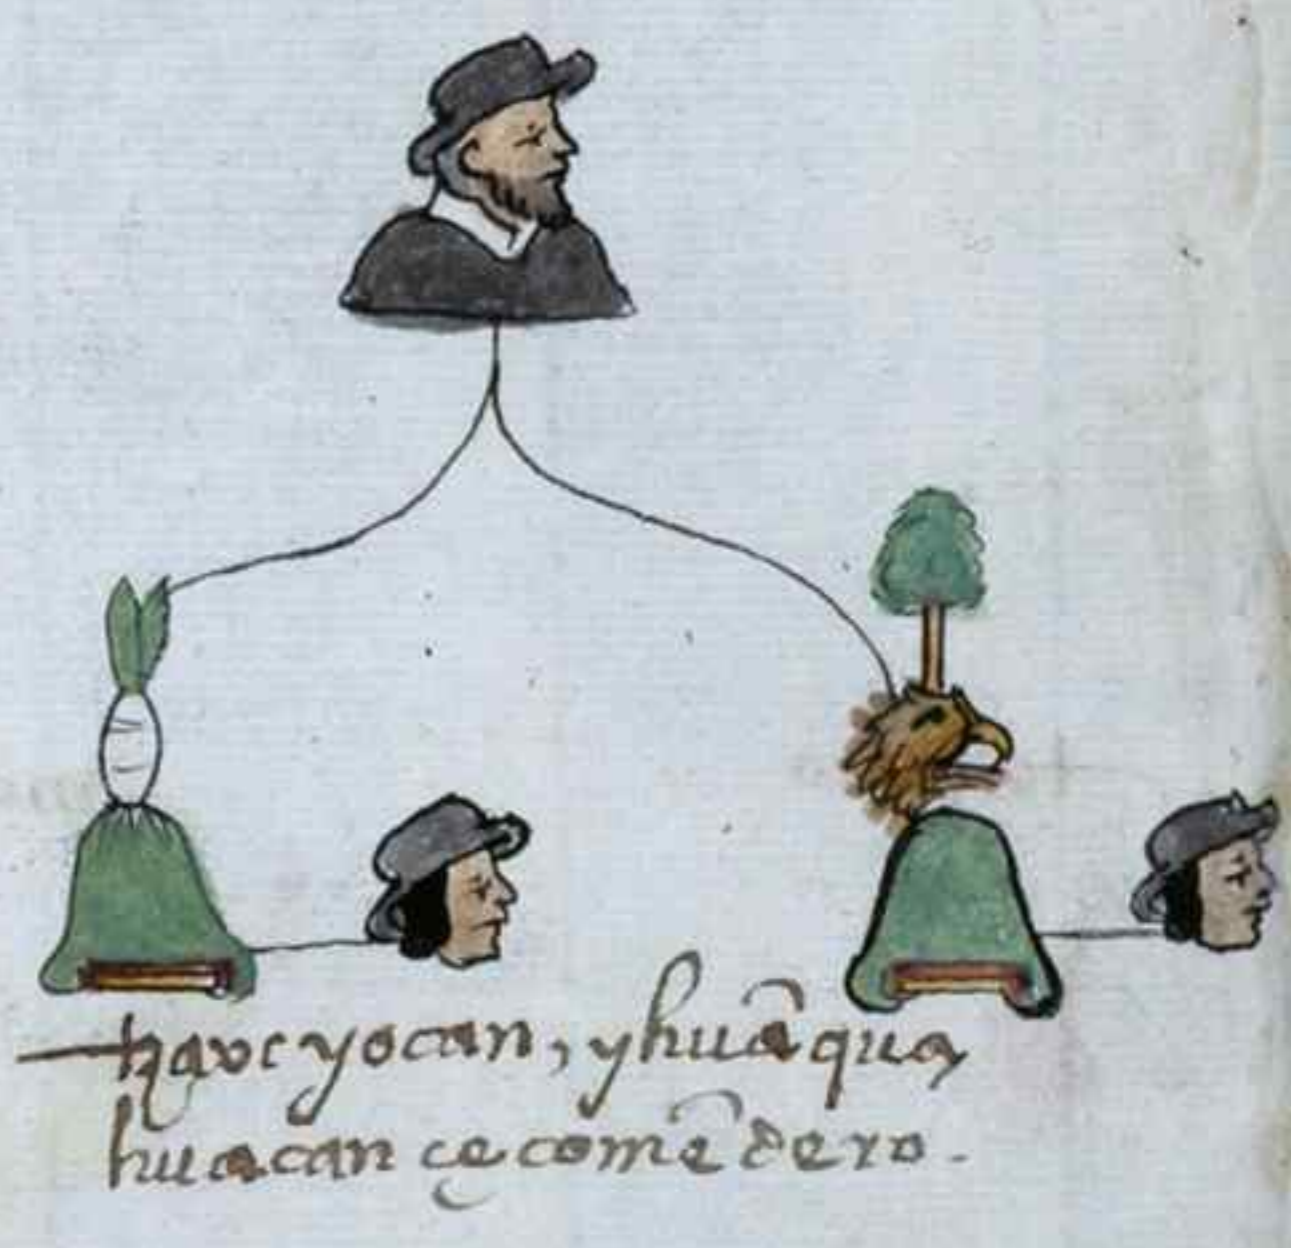 tzavcyocan, yhuā qua
huacan çe comēdero.